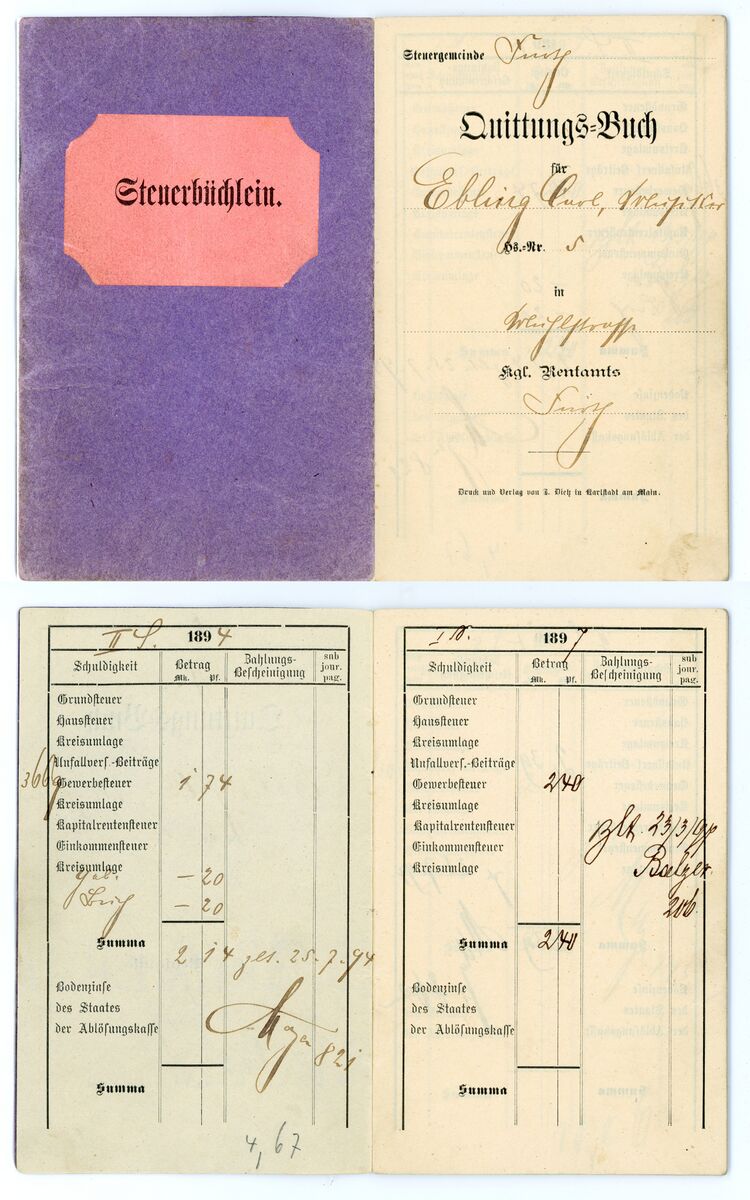 Steuerbüchlein.
Steuergemeinde Fürth
Quittungs-Buch
für
Ebling Carl, Musiker
Hs.-Nr. 5
in
Mühlstrasse
Kgl. Rentamts
Fürth
Druck und Verlag von J. Dietz in Karlstadt am Main.
II S. 1894
Schuldigkeit Betrag Mk. Pf. Zahlungs-Bescheinigung sub jour. pag.
Grundsteuer
Haussteuer
Kreisumlage
Unfallvers.-Beiträge
366 Gewerbesteuer 1 74
Kreisumlage
Kapitalrentensteuer
Einkommensteuer
Kreisumlage
Geb. – 20
Buch – 20
Summa 2 14 zlt. 25-7-94
Bodenzinse
des Staates
der Ablösungskasse
Mayer 821
Summa
4,67
1897
Schuldigkeit Betrag Mk. Pf. Zahlungs-Bescheinigung sub jour. pag.
Grundsteuer
Haussteuer
Kreisumlage
Unfallvers.-Beiträge
Gewerbesteuer 2 40
Kreisumlage
Kapitalrentensteuer bzlt. 23/3/97
Einkommensteuer
Kreisumlage
206
Summa 2 40
Bodenzinse
des Staates
der Ablösungskasse
Summa